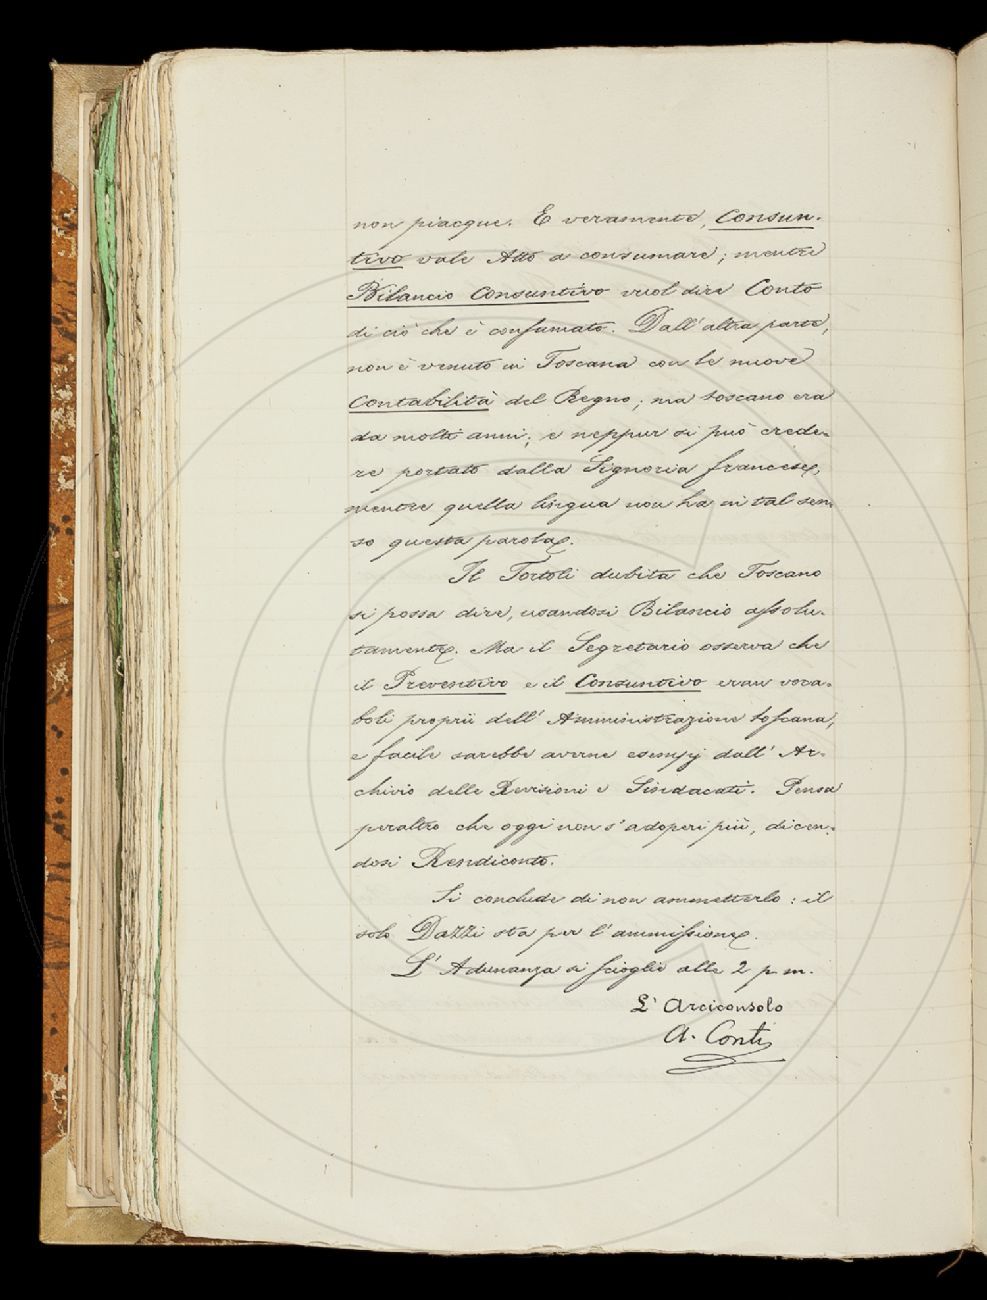 non piacque. E veramente, Consun-
tivo vale Atto a consumare; mentre
Bilancio Consuntivo vuol dire Conto
di ciò che è consumato. Dall'altra parte,
non è venuto in Toscana con le nuove
Contabilità del Regno; ma toscano era
da molti anni; e neppur si può crede-
re portato dalla Signoria francese,
mentre quella lingua non ha in tal sen-
so questa parola.
Il Tortoli dubita che Toscano
si possa dire, usandosi Bilancio assolu-
tamente. Ma il Segretario osserva che
il Preventivo e il Consuntivo eran voca-
boli proprii dell'Amministrazione toscana,
e facile sarebbe averne esempj dall'Ar-
chivio delle Revisioni e Sindacati. Pensa
peraltro che oggi non s'adoperi più, dicen-
dosi Rendiconto.
Si conclude di non ammetterlo: il
solo Dazzi sta per l'ammissione.
L'Adunanza si scioglie alle 2 p. m.
L'Arciconsolo
A. Conti